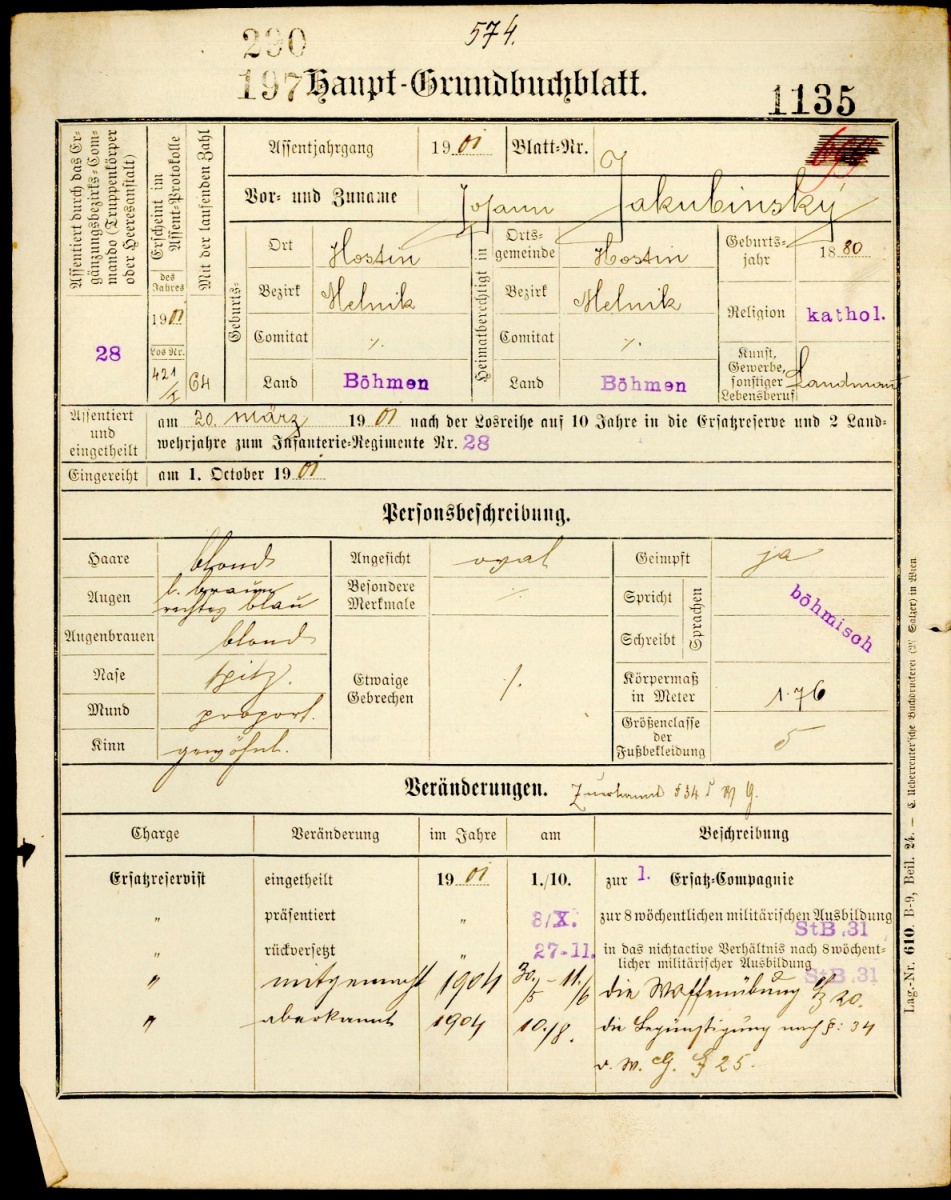 574.
290
197
Haupt-Grundbuchblatt.
1135
Assentiert durch das Er-
gänzungsbezirks-Com-
mando (Truppenkörper
oder Heeresanstalt)
28
Erscheint im
Assent-Protokolle
des
Jahres
1901
Los Nr.
421
/I
Mit der laufenden Zahl
64
Assentjahrgang 1901 Blatt-Nr.
J
Vor- und Zuname Johann Jakubinský
Geburts-
Ort Hostin
Bezirk Melnik
Comitat ·/.
Land Böhmen
Heimatberechtigt in
Orts-
gemeinde Hostin
Bezirk Melnik
Comitat ·/.
Land Böhmen
Geburts-
jahr 1880
Religion kathol.
Kunst,
Gewerbe,
sonstiger
Lebensberuf Landmann
Assentiert
und
eingetheilt
am 20. März 1901 nach der Losreihe auf 10 Jahre in die Ersatzreserve und 2 Land-
wehrjahre zum Infanterie-Regimente Nr. 28
Eingereiht am 1. October 1901
Personsbeschreibung.
Haare blond
Augen l. braun
rechtes blau
Augenbrauen blond
Nase spitz.
Mund proport.
Kinn gewöhnl.
Angesicht oval
Besondere
Merkmale ·/.
Etwaige
Gebrechen ·/.
Geimpft ja
Spricht
Schreibt
Sprachen
böhmisch
Körpermaß
in Meter 1·76
Größenclasse
der
Fußbekleidung 5
Veränderungen. Zuerkannt § 34 W G.
Charge Veränderung im Jahre am Beschreibung
Ersatzreservist eingetheilt 1901 1./10. zur 1. Ersatz-Compagnie
„ präsentiert „ 8/X. zur 8 wöchentlichen militärischen Ausbildung
StB.31
„ rückversetzt „ 27-11. in das nichtactive Verhältnis nach 8 wöchent-
licher militärischer Ausbildung StB.31
„ mitgemacht 1904 30/5 - 11/6 die Waffenübung 20.
„ aberkannt 1904 10./8. die Begünstigung nach §: 34
d. W. G. 25.
Lag.-Nr. 610. B-9, Beil. 24. — C. Ueberreuter'sche Buchdruckerei (M. Salzer) in Wien